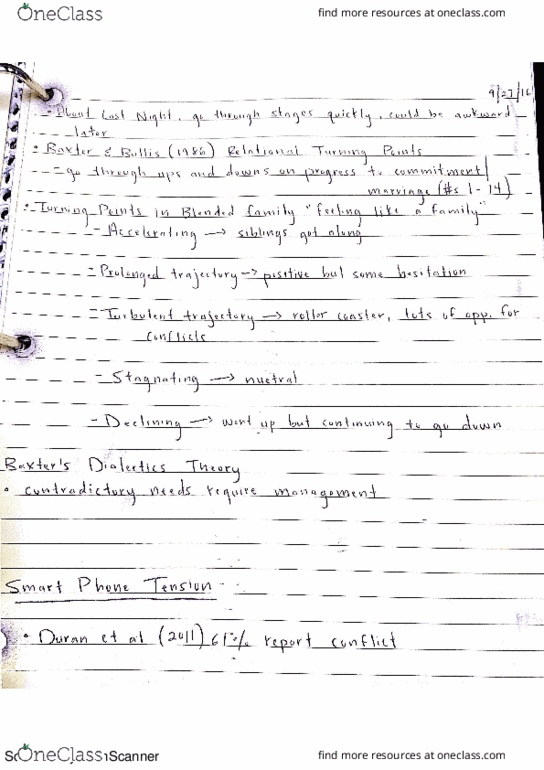 OneClass
find more resources at oneclass.com
9/27/16
- About Last Night, go through stages quickly, could be awkward
later
• Baxter & Bullis (1986) Relational Turning Points
- go through ups and downs on progress to commitment/
marriage (#s 1-14)
• Turning Points in Blended family "feeling like a family"
- Accelerating → siblings got along
- Prolonged trajectory → positive but some hesitation
- Turbulent trajectory → roller coaster, lots of opp. for
conflicts
- Stagnating → nuetral
- Declining → went up but continuing to go down
Baxter's Dialectics Theory
• contradictory needs require management
Smart Phone Tension
• Duran et al (2011) 61% report conflict
OneClass
Scanner
find more resources at oneclass.com